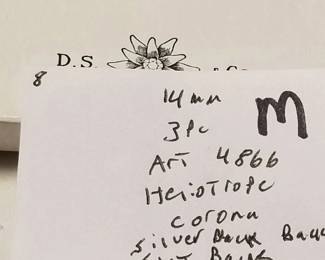 D.S.
& Co
8
14 mm
M
3 pc
Art 4866
Heliotrope
corona
silver Back